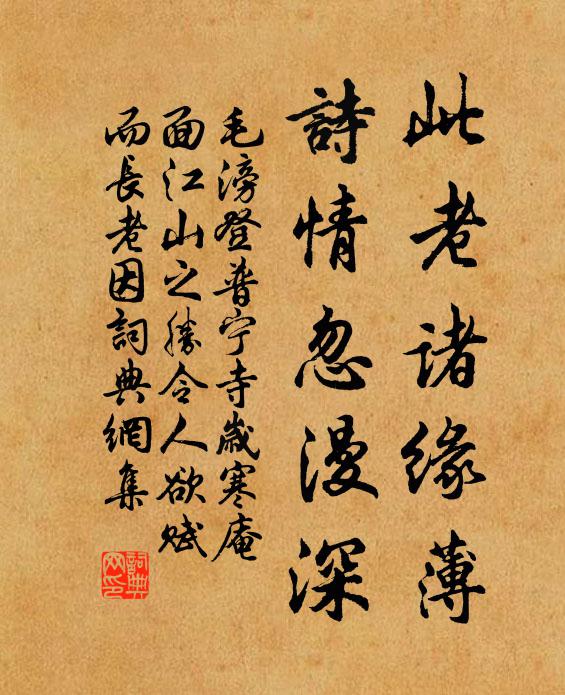 此老诸缘薄
詩情忽漫深
毛滂登普宁寺歲寒庵
面江山之勝令人欲赋
而長老因詞典網集
詞典
网印